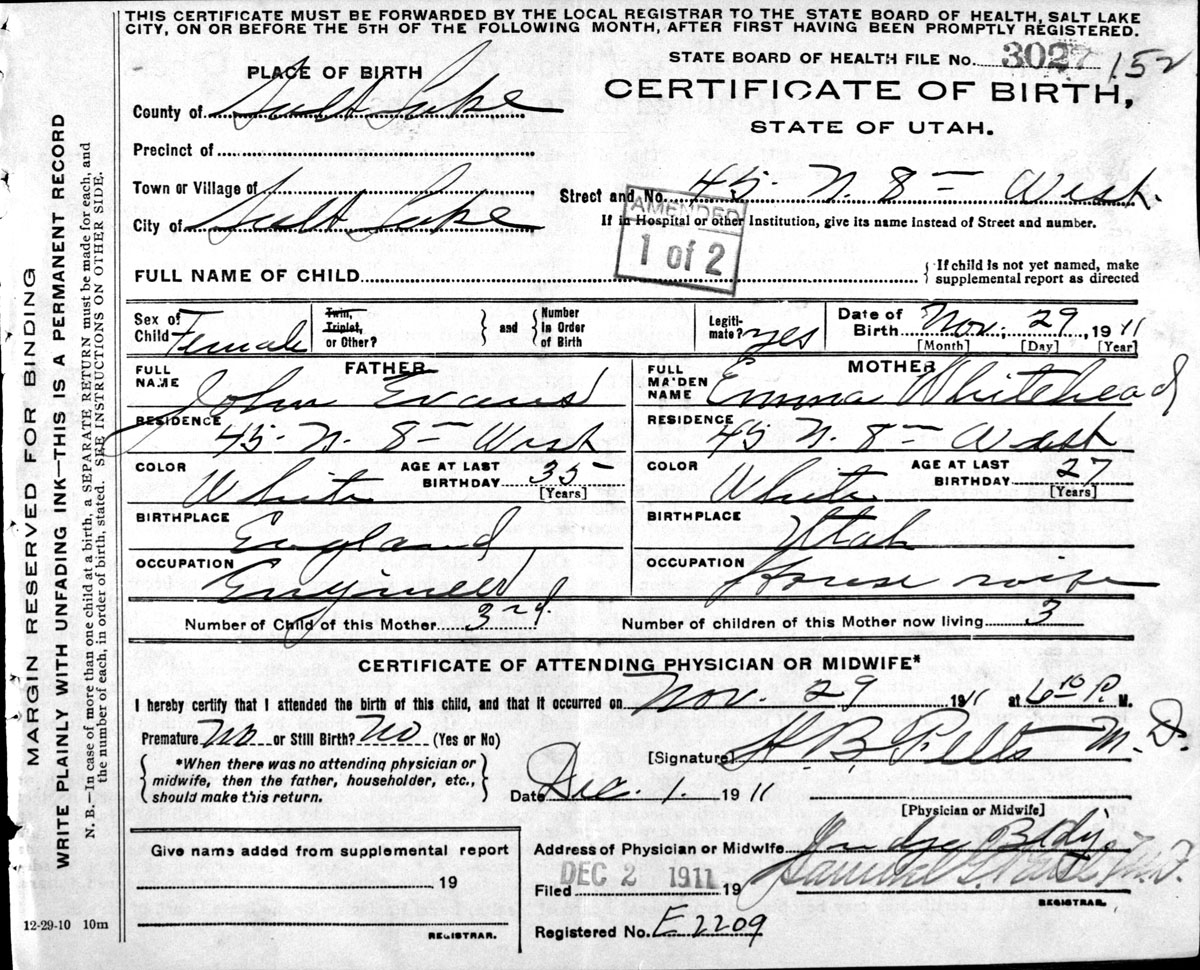 THIS CERTIFICATE MUST BE FORWARDED BY THE LOCAL REGISTRAR TO THE STATE BOARD OF HEALTH, SALT LAKE
CITY, ON OR BEFORE THE 5TH OF THE FOLLOWING MONTH, AFTER FIRST HAVING BEEN PROMPTLY REGISTERED.
STATE BOARD OF HEALTH FILE No. 3027 152
PLACE OF BIRTH
CERTIFICATE OF BIRTH,
STATE OF UTAH.
County of Salt Lake
Precinct of
Town or Village of
Street and No. 45 N. 8th West.
City of Salt Lake
If in Hospital or other Institution, give its name instead of Street and number.
AMENDED
1 of 2
FULL NAME OF CHILD
If child is not yet named, make
supplemental report as directed
Sex of Child Female
Twin, Triplet, or Other?
and
Number in Order of Birth
Legiti-mate? yes
Date of Birth Nov. 29 1911
[Month] [Day] [Year]
FATHER
FULL NAME John Evans
RESIDENCE 45 N. 8th West
COLOR White
AGE AT LAST BIRTHDAY 35
[Years]
BIRTHPLACE England
OCCUPATION Engineer
MOTHER
FULL MAIDEN NAME Emma Whitehead
RESIDENCE 45 N. 8th West
COLOR White
AGE AT LAST BIRTHDAY 27
[Years]
BIRTHPLACE Utah
OCCUPATION House wife
Number of Child of this Mother 3rd.
Number of children of this Mother now living 3
CERTIFICATE OF ATTENDING PHYSICIAN OR MIDWIFE*
I hereby certify that I attended the birth of this child, and that it occurred on Nov. 29 1911 at 6 10 P. M.
Premature No or Still Birth? No (Yes or No)
[Signature] H. B. M. D.
*When there was no attending physician or
midwife, then the father, householder, etc.,
should make this return.
Date Dec. 1. 1911
[Physician or Midwife]
Address of Physician or Midwife Judge Bldg
Give name added from supplemental report
19
REGISTRAR.
Filed DEC 2 1911 19
Samuel G. M.D.
REGISTRAR.
Registered No. E2209
12-29-10 10m
MARGIN RESERVED FOR BINDING
WRITE PLAINLY WITH UNFADING INK—THIS IS A PERMANENT RECORD
N. B.—In case of more than one child at a birth, a SEPARATE RETURN must be made for each, and
the number of each, in order of birth, stated. SEE INSTRUCTIONS ON OTHER SIDE.